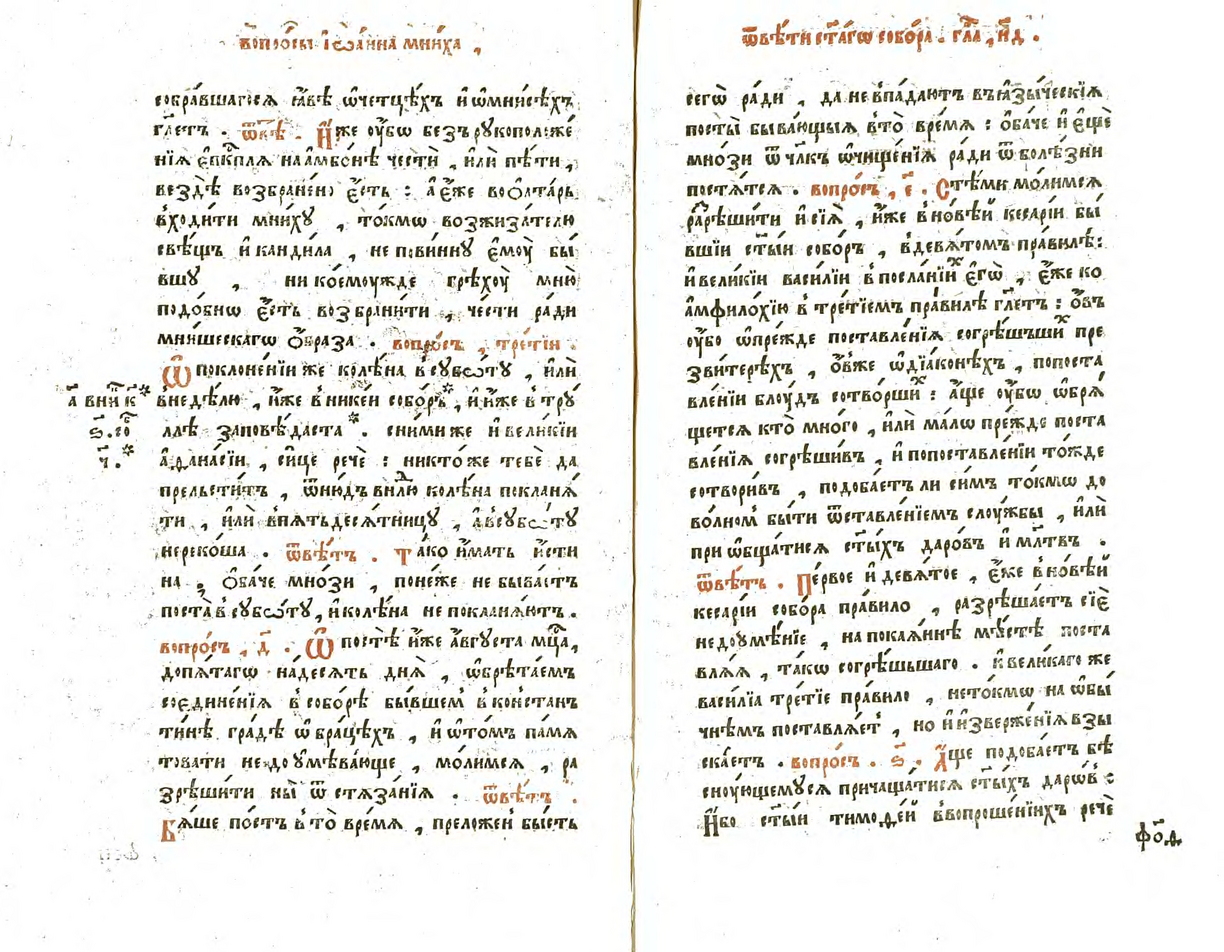 вопро́сы і҆ѡа́нна мни́ха ,
собра́вшагося гла́вѣ ѡ҆четцѣ́хъ и҆ѡ҆мни́сѣхъ
гл҃етъ . ѿвѣ́ . И҆́же ᲂу҆́бѡ без̾рукополѡже́
нїѧ є҆пк҃пля на а҆мбо́нѣ честѝ , и҆лѝ пѣ́ти ,
вездѣ̀ возбране́но є҆́сть : а҆ є҆́же во ѻ҆лта́рь
входи́ти мни́хꙋ , то́кмѡ возжиза́телю
свѣ́щъ и҆ канди́ла , не пови́ннꙋ є҆мꙋ̀ бы́
вшꙋ , ни кое́моужде грѣхꙋ̀ мню̀
подо́бнѡ є҆́сть возбрани́ти , че́сти ра́ди
мни́шескагѡ ѻ҆́браза . вопро́съ , тре́тїи .
Ѡ҆ поклоне́нїи же колѣ́на в̾сꙋббѡ́тꙋ , и҆лѝ
в̾недѣ́лю , и҆́же в̾нике́и собо́ръ* , и҆ и҆́же в̾трꙋ́
ллѣ заповѣ́даста* . сни́ми же и҆ вели́кїи
а҆ѳана́сїи , си́це речѐ : никто́же тебѐ да
прельсти́тъ , ѿню́дъ в̾нл҃ю колѣ́на поклани́
ти , и҆лѝ в̾пѧтьдесѧ́тницꙋ , а҆ в̾сꙋббѡ́тꙋ
нереко́ша . ѿвѣ́тъ . та́ко и҆́мать и҆́сти
на , ѻ҆ба́че мно́зи , поне́же не быва́етъ
поста̀ в̾сꙋббѡ́тꙋ , и҆ колѣ́на не покланѧ́ютъ .
вопро́съ , д҃ . Ѡ҆ по́стѣ и҆́же а҆́вгꙋста мц҃а ,
до пѧ́тагѡ на́десѧть днѧ̀ , ѡ҆брѣта́емъ
соедине́нїѧ в̾собо́рѣ бы́вшем̾ в̾констан
ти́нѣ гра́дѣ ѡ҆ бра́цѣхъ , и҆ ѡ҆то́мъ памѧ́
товати недоꙋмѣ́вающе , мо́лимсѧ , ра
зрѣши́ти ны̀ ѿ стѧза́нїѧ . ѿвѣ́тъ .
Бѧ́ше по́стъ в̾то̀ вре́мѧ , прело́женъ бы́сть
а҃ в̾ни́к*
ѕ҃.го̀
ч҃.*
ѿвѣ́ти ст҃а́гѡ собо́ра . гла̀ , н҃д .
сегѡ̀ ра́ди , да не в̾пада́ютъ въ ꙗ҆зы́ческїѧ
посты̀ быва́ющыѧ в̾то̀ вре́мѧ : ѻ҆ба́че и҆ є҆щѐ
мно́зи ѿ чл҃къ ѡ҆чище́нїѧ ра́ди ѿ болѣ́зни
постѧ́тсѧ . вопро́съ , є҃ . Стѣ́ми мо́лимсѧ
разрѣши́ти и҆ сїѧ̀ , и҆́же в̾но́вѣй кеса́рїи бы́
вшїи ст҃ы́и собо́ръ , в̾девѧ́томъ пра́вилѣ :
и҆ вели́кїи васи́лїи в̾посла́нїих є҆гѡ̀ , є҆́же ко
а҆мфило́хїю в̾тре́тїемъ пра́вилѣ гл҃етъ : ѻ҆́въ
ᲂу҆́бо ѡ҆пре́жде поставле́нїѧ согрѣ́шьших пре
зви́терѣхъ , ѻ҆́вже ѡ҆дїа́конѣхъ , по поста
вле́нїи блоу́дъ сотво́рших : а҆́ще ᲂу҆́бѡ ѡ҆брѧ́
щетсѧ кто̀ мно́го , и҆лѝ ма́лѡ пре́жде поста
вле́нїѧ согрѣши́въ , и҆ по поставле́нїи то́жде
сотвори́въ , подоба́етъ ли си́мъ то́кмѡ до
во́лном̾ бы́ти ѿставле́нїемъ слоу́жбы , и҆лѝ
при ѡ҆бща́тисѧ ст҃ы́хъ даро́въ и҆ мл҃твъ .
ѿвѣ́тъ . Пе́рвое и҆ девѧ́тое , є҆́же в̾но́вѣй
кеса́рїи собо́ра пра́вило , разрѣша́етъ сїѐ
недоꙋмѣ́нїе , на покаѧ́ннѣ мѣ́стѣ поста
влѧ́ѧ , та́кѡ согрѣ́шьшаго . и҆ вели́каго же
васи́лїа тре́тїе пра́вило , не то́кмѡ на ѡ҆бы́
чнѣмъ поставлѧ́ет̾ , но и҆ и҆зверже́нїѧ взы
ска́етъ . вопро́съ . ѕ҃ . А҆́ще подоба́етъ бѣ
сноу́ющемꙋсѧ причаща́тисѧ ст҃ы́хъ даро́въ :
И҆́бо ст҃ы́и тимоѳе́й в̾вопроше́нїихъ речѐ
фѻ҃д.